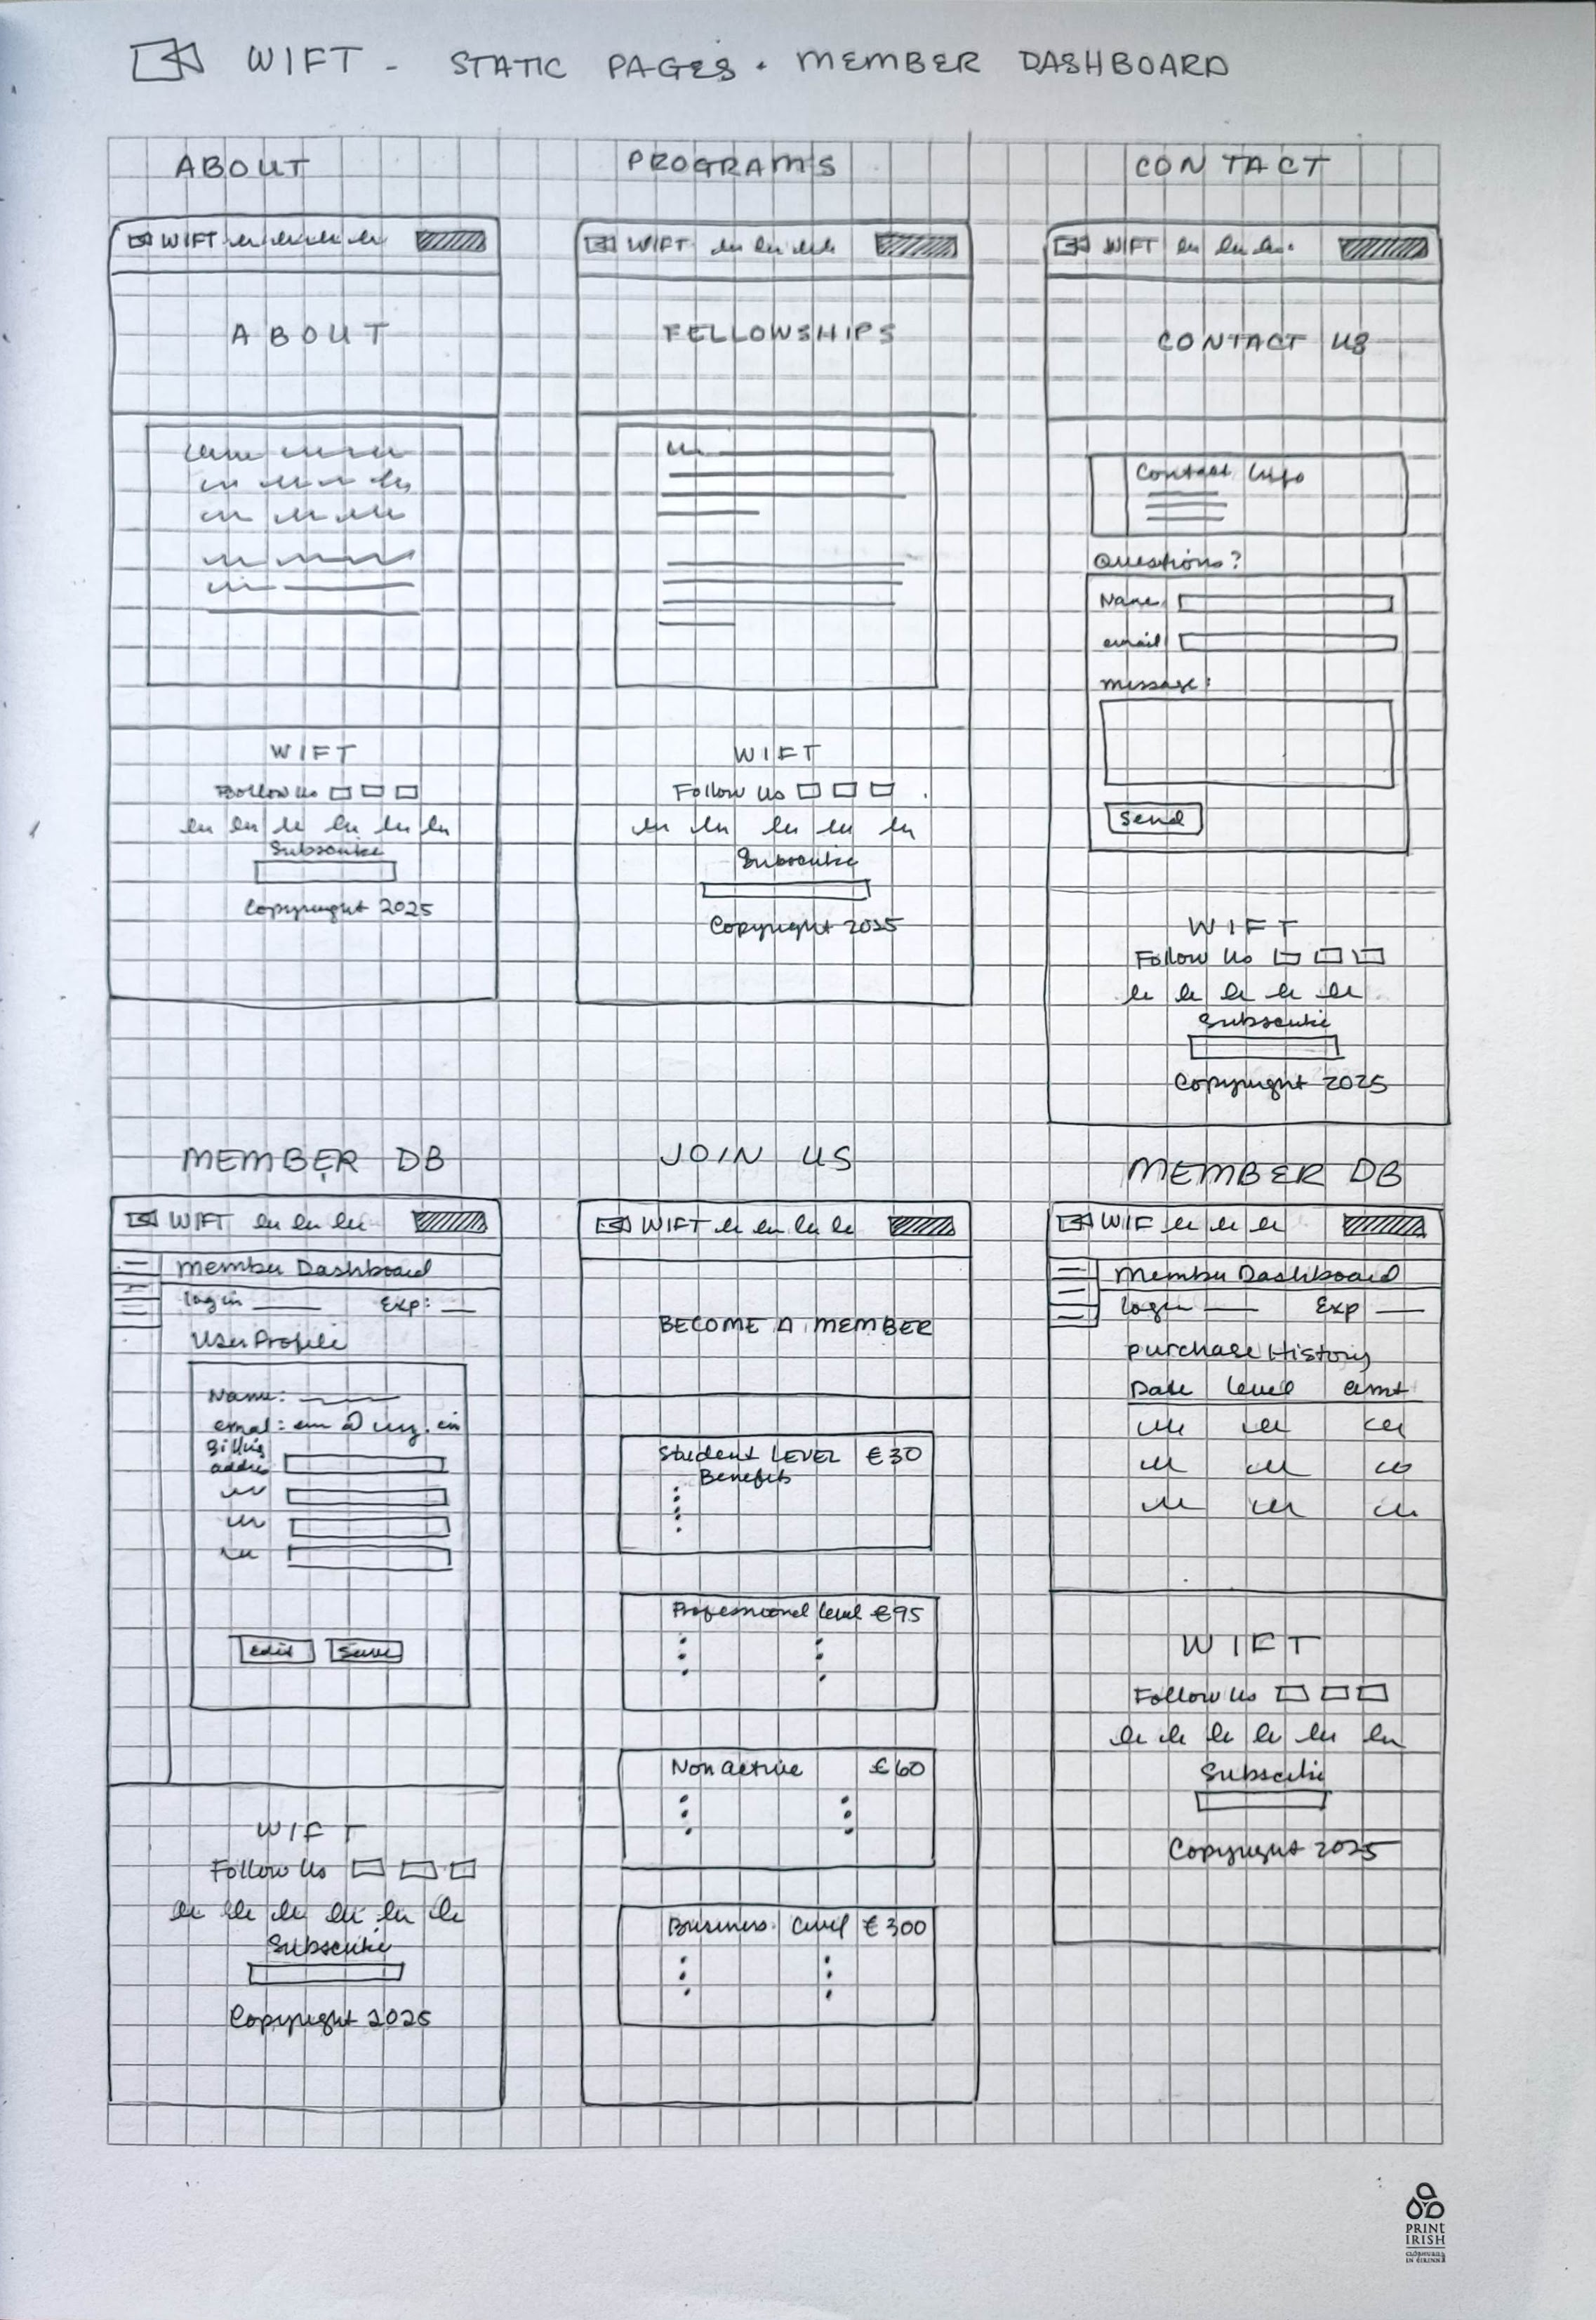 WIFT - STATIC PAGES. MEMBER DASHBOARD
ABOUT
WIFT
ABOUT
WIFT
Follow Us
Subscribe
Copyright 2025
PROGRAMS
WIFT
FELLOWSHIPS
WIFT
Follow Us
Subscribe
Copyright 2025
CONTACT
WIFT
CONTACT US
Contact Info
Questions?
Name
email
message:
Send
WIFT
Follow Us
Subscribe
Copyright 2025
MEMBER DB
WIFT
Member Dashboard
log in Exp:
User Profile
Name:
email: @
Billing
addres
edit Save
WIFT
Follow Us
Subscribe
Copyright 2025
JOIN US
WIFT
BECOME A MEMBER
Student LEVEL €30
Benefits
Professional level €95
Non active €60
Business level €300
MEMBER DB
WIF
Member Dashboard
login Exp
purchase History
Date level amt
WIFT
Follow Us
Subscribe
Copyright 2025
PRINT
IRISH
CLÓBHUAILTE
IN ÉIRINN